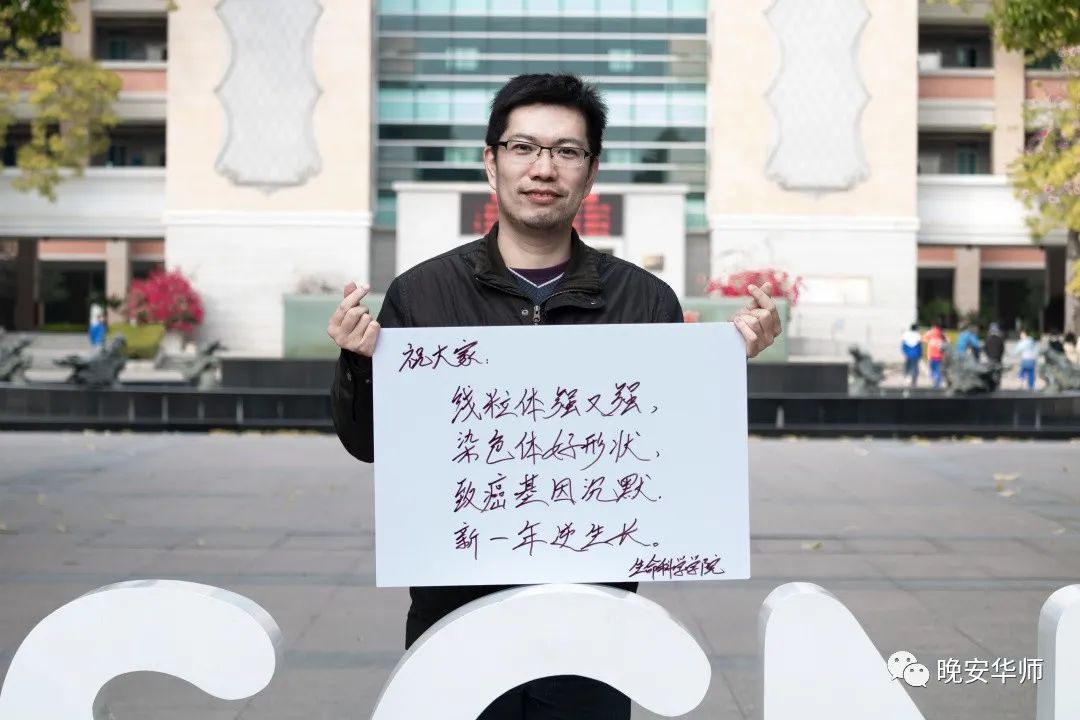 祝大家:
线粒体强又强,
染色体好形状,
致癌基因沉默.
新一年逆生长。
生命科学学院
SCN
晚安华师